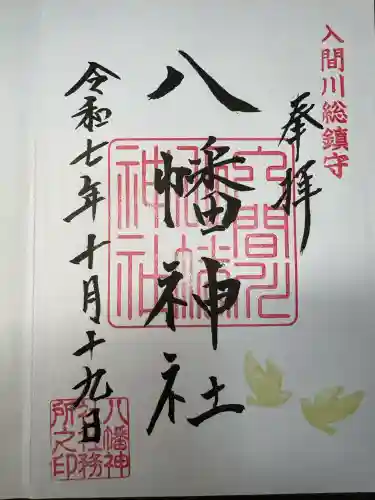 入間川総鎮守
奉拝
八幡神社
令和七年十月十九日
入間川
八幡
神社
八幡神
社社務
所之印